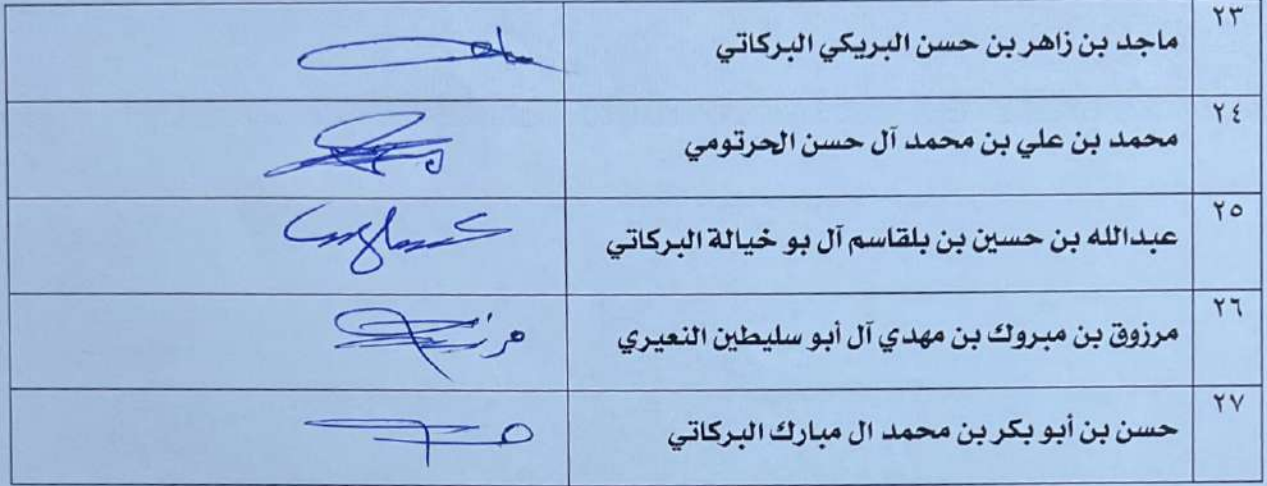 ٢٣ ماجد بن زاهر بن حسن البريكي البركاتي
٢٤ محمد بن علي بن محمد آل حسن الحرتومي
٢٥ عبدالله بن حسين بن بلقاسم آل بو خيالة البركاتي
٢٦ مرزوق بن مبروك بن مهدي آل أبو سليطين النعيري
٢٧ حسن بن أبو بكر بن محمد ال مبارك البركاتي